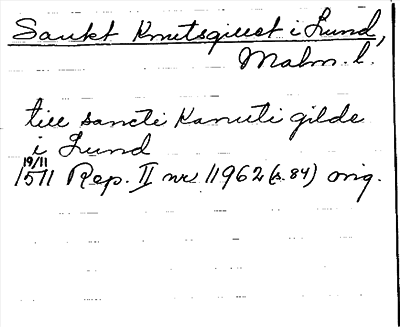 Sankt Knutsgillet i Lund,
Malm. l.
till sancti Kanuti gilde
i Lund
19/11
1511 Rep. II nr 11962 (s. 84) orig.